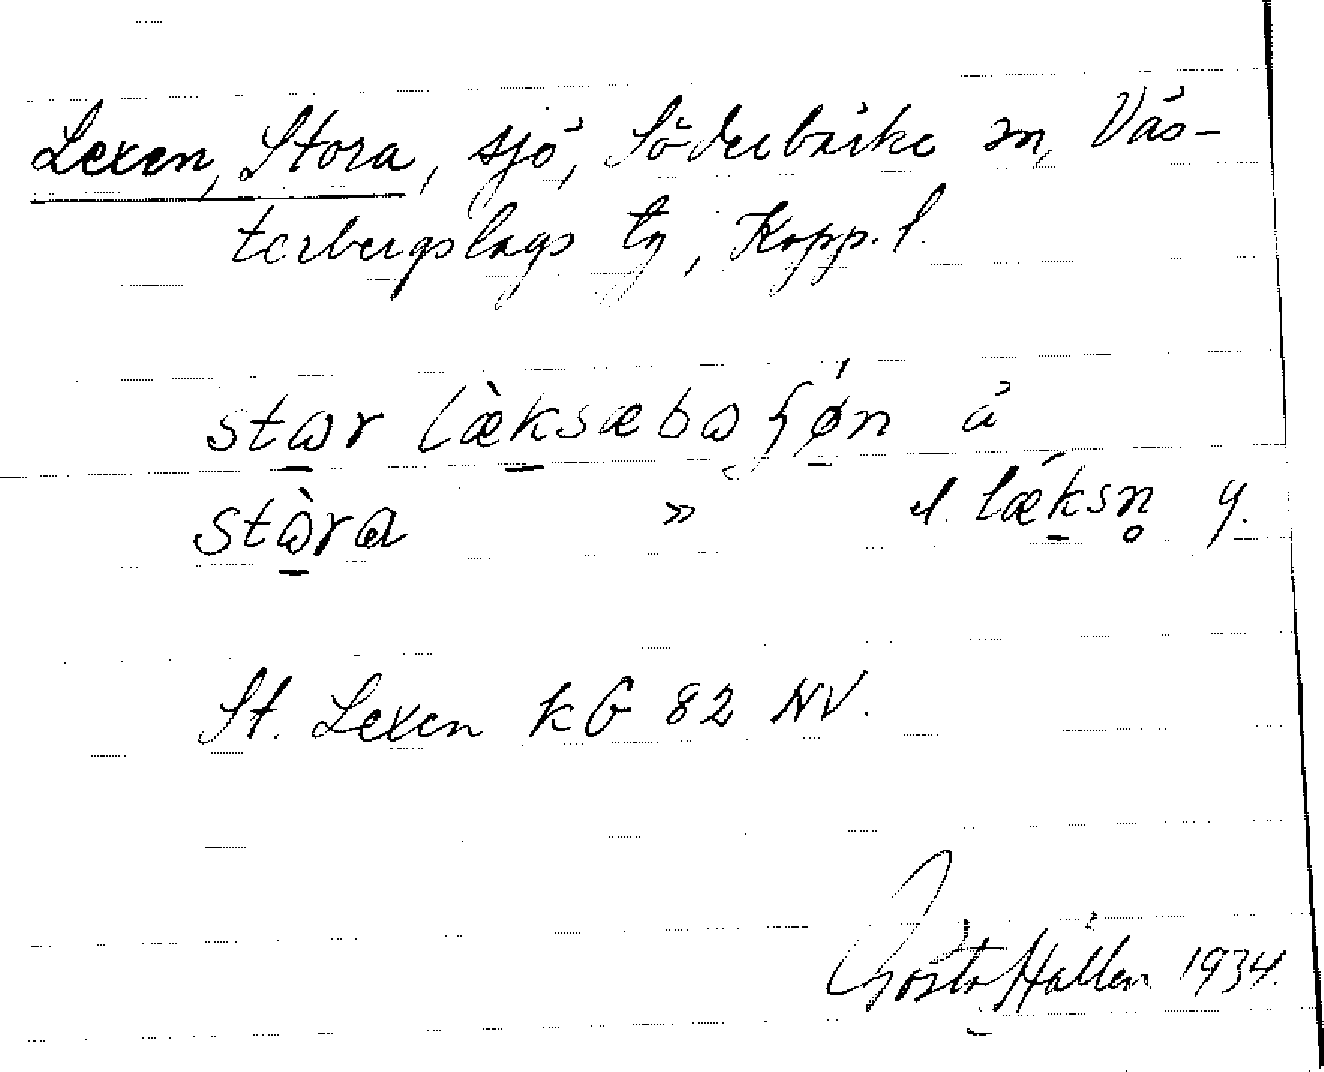 Lexen, Stora, sjö, Söderbärke sn, Väs-
terbergslags tg, Kopp. l.
stɷr læ̀ksæbɷ ʃǿn ä
stɷ̀ra » el. lǽksn̥ y.
St. Lexen kG 82 NV.
Gösta Hallén 1934.